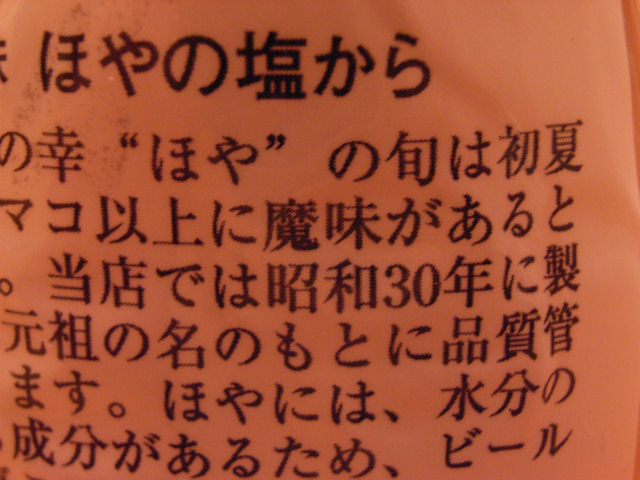 ほやの塩から
の幸“ほや”の旬は初夏
マコ以上に魔味があると
。当店では昭和30年に製
元祖の名のもとに品質管
ます。ほやには、水分の
成分があるため、ビール